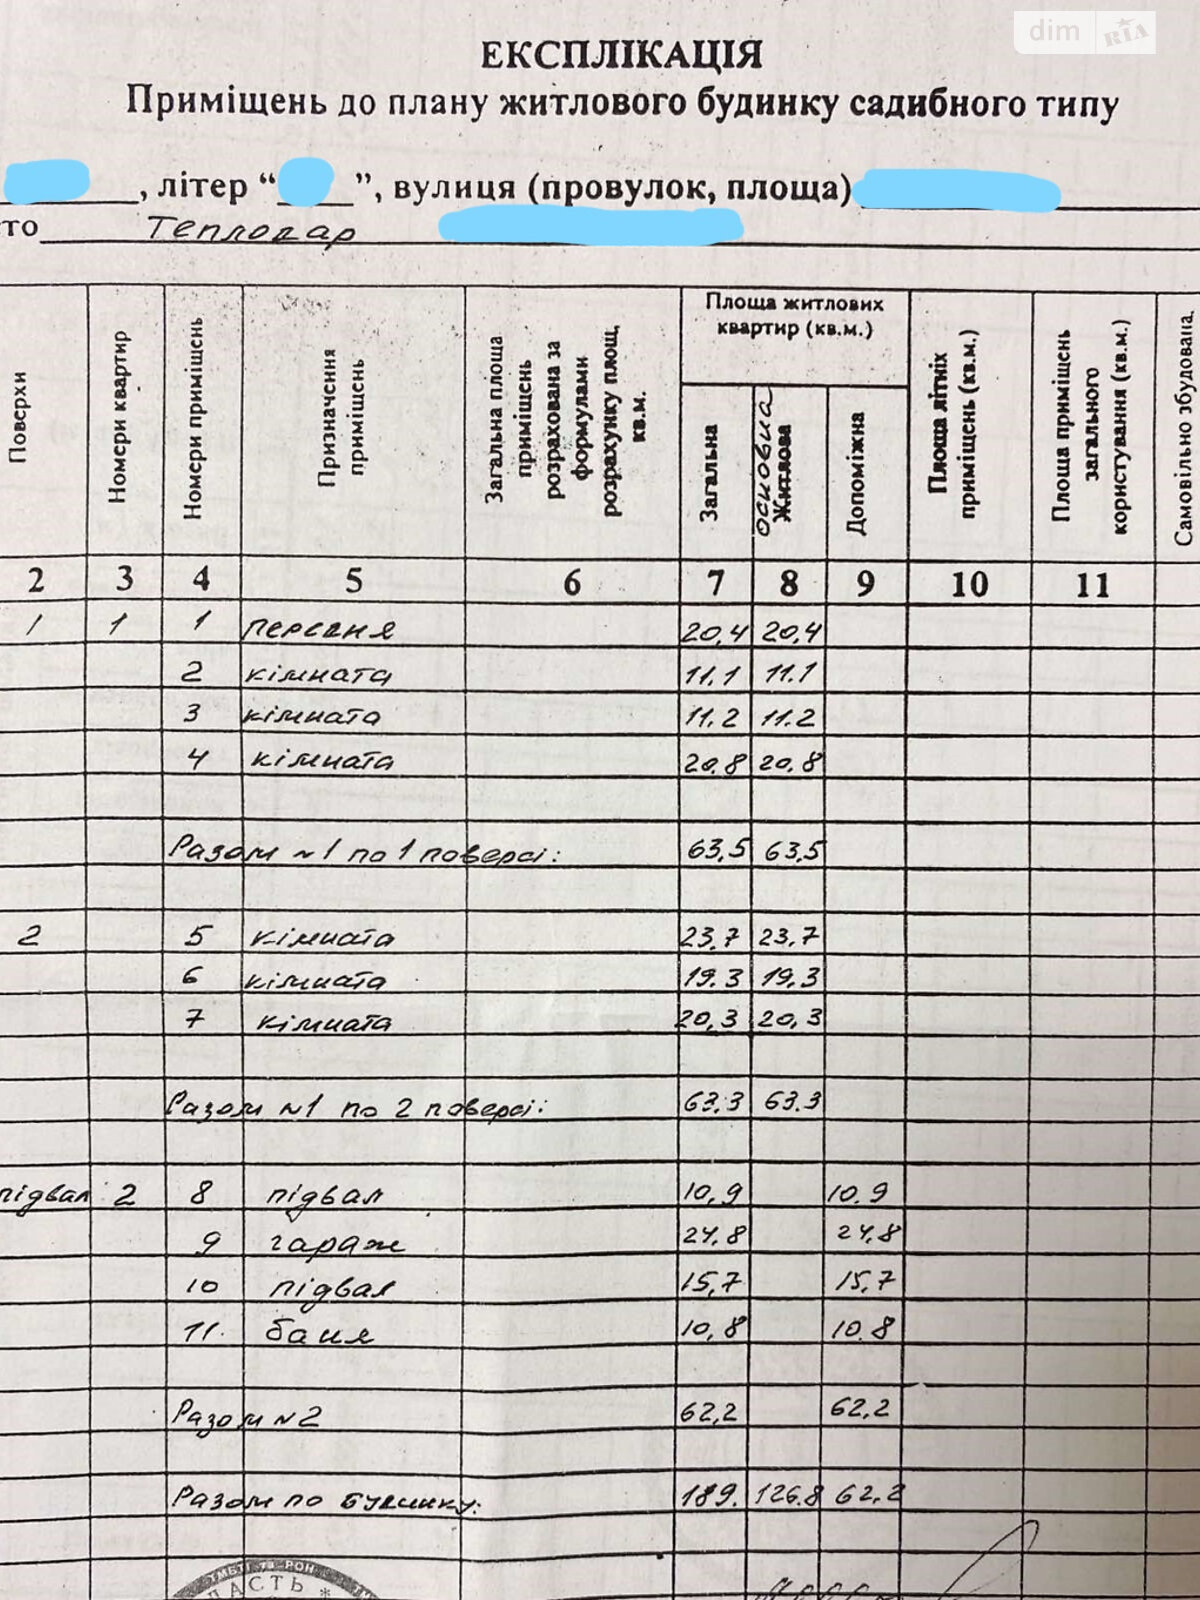 dim RIA
ЕКСПЛІКАЦІЯ
Приміщень до плану житлового будинку садибного типу
, літер “ ”, вулиця (провулок, площа)
то Теплодар
Поверхи
Номери квартир
Номери приміщень
Призначення приміщень
Загальна площа приміщень розрахована за формулами розрахунку площ, кв.м.
Площа житлових квартир (кв.м.)
Загальна
основна Житлова
Допоміжна
Площа літніх приміщень (кв.м.)
Площа приміщень загального користування (кв.м.)
Самовільно збудована
2 3 4 5 6 7 8 9 10 11
1 1 1 20,4 20,4
2 кімната 11.1 11.1
3 кімната 11.2 11.2
4 кімната 20.8 20,8
Разом №1 по 1 поверсі: 63,5 63,5
2 5 кімната 23.7 23.7
6 кімната 19.3 19,3
7 кімната 20,3 20,3
Разом №1 по 2 поверсі: 63.3 63.3
підвал 2 8 підвал 10,9 10.9
9 гараж 24.8 24,8
10 підвал 15,7 15,7
11. баня 10,8 10.8
Разом №2 62,2 62,2
Разом по будинку: 189. 126.8 62,2